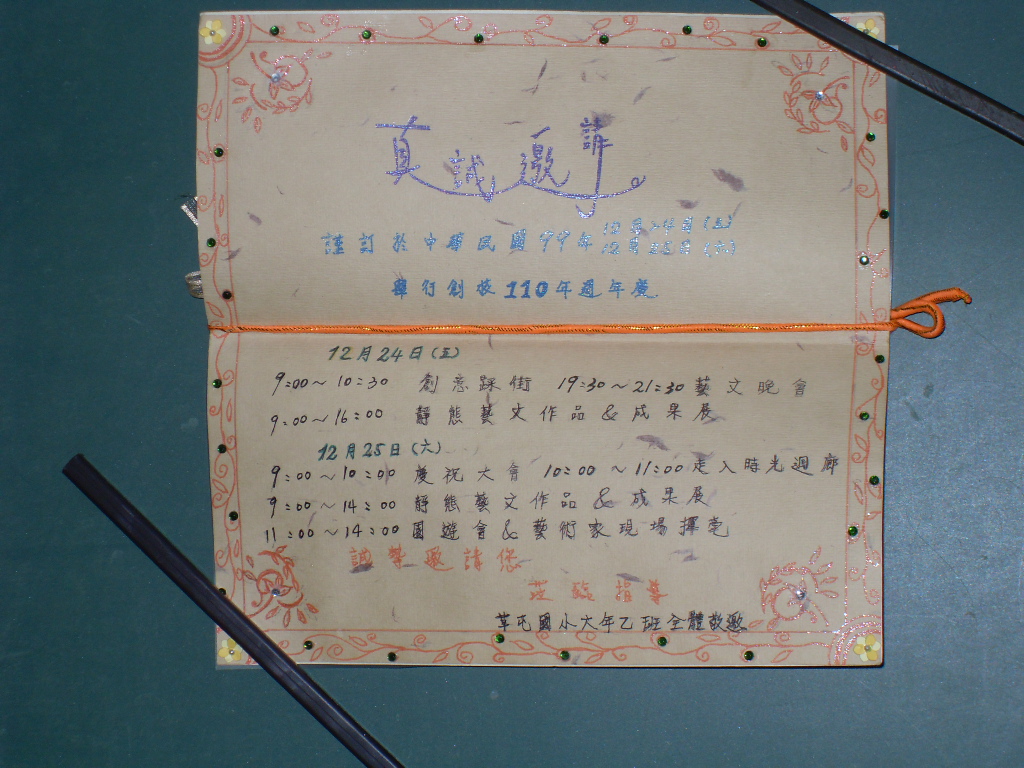 真誠邀請
謹訂於中華民國99年12月24日(五)
12月25日(六)
舉行創校110年週年慶
12月24日(五)
9:00~10:30 創意踩街 19:30~21:30藝文晚會
9:00~16:00 靜態藝文作品&成果展
12月25日(六)
9:00~10:00 慶祝大會 10:00~11:00走入時光迴廊
9:00~14:00靜態藝文作品&成果展
11:00~14:00園遊會&藝術家現場揮毫
誠摯邀請您
蒞臨指導
草屯國小六年乙班全體敬邀